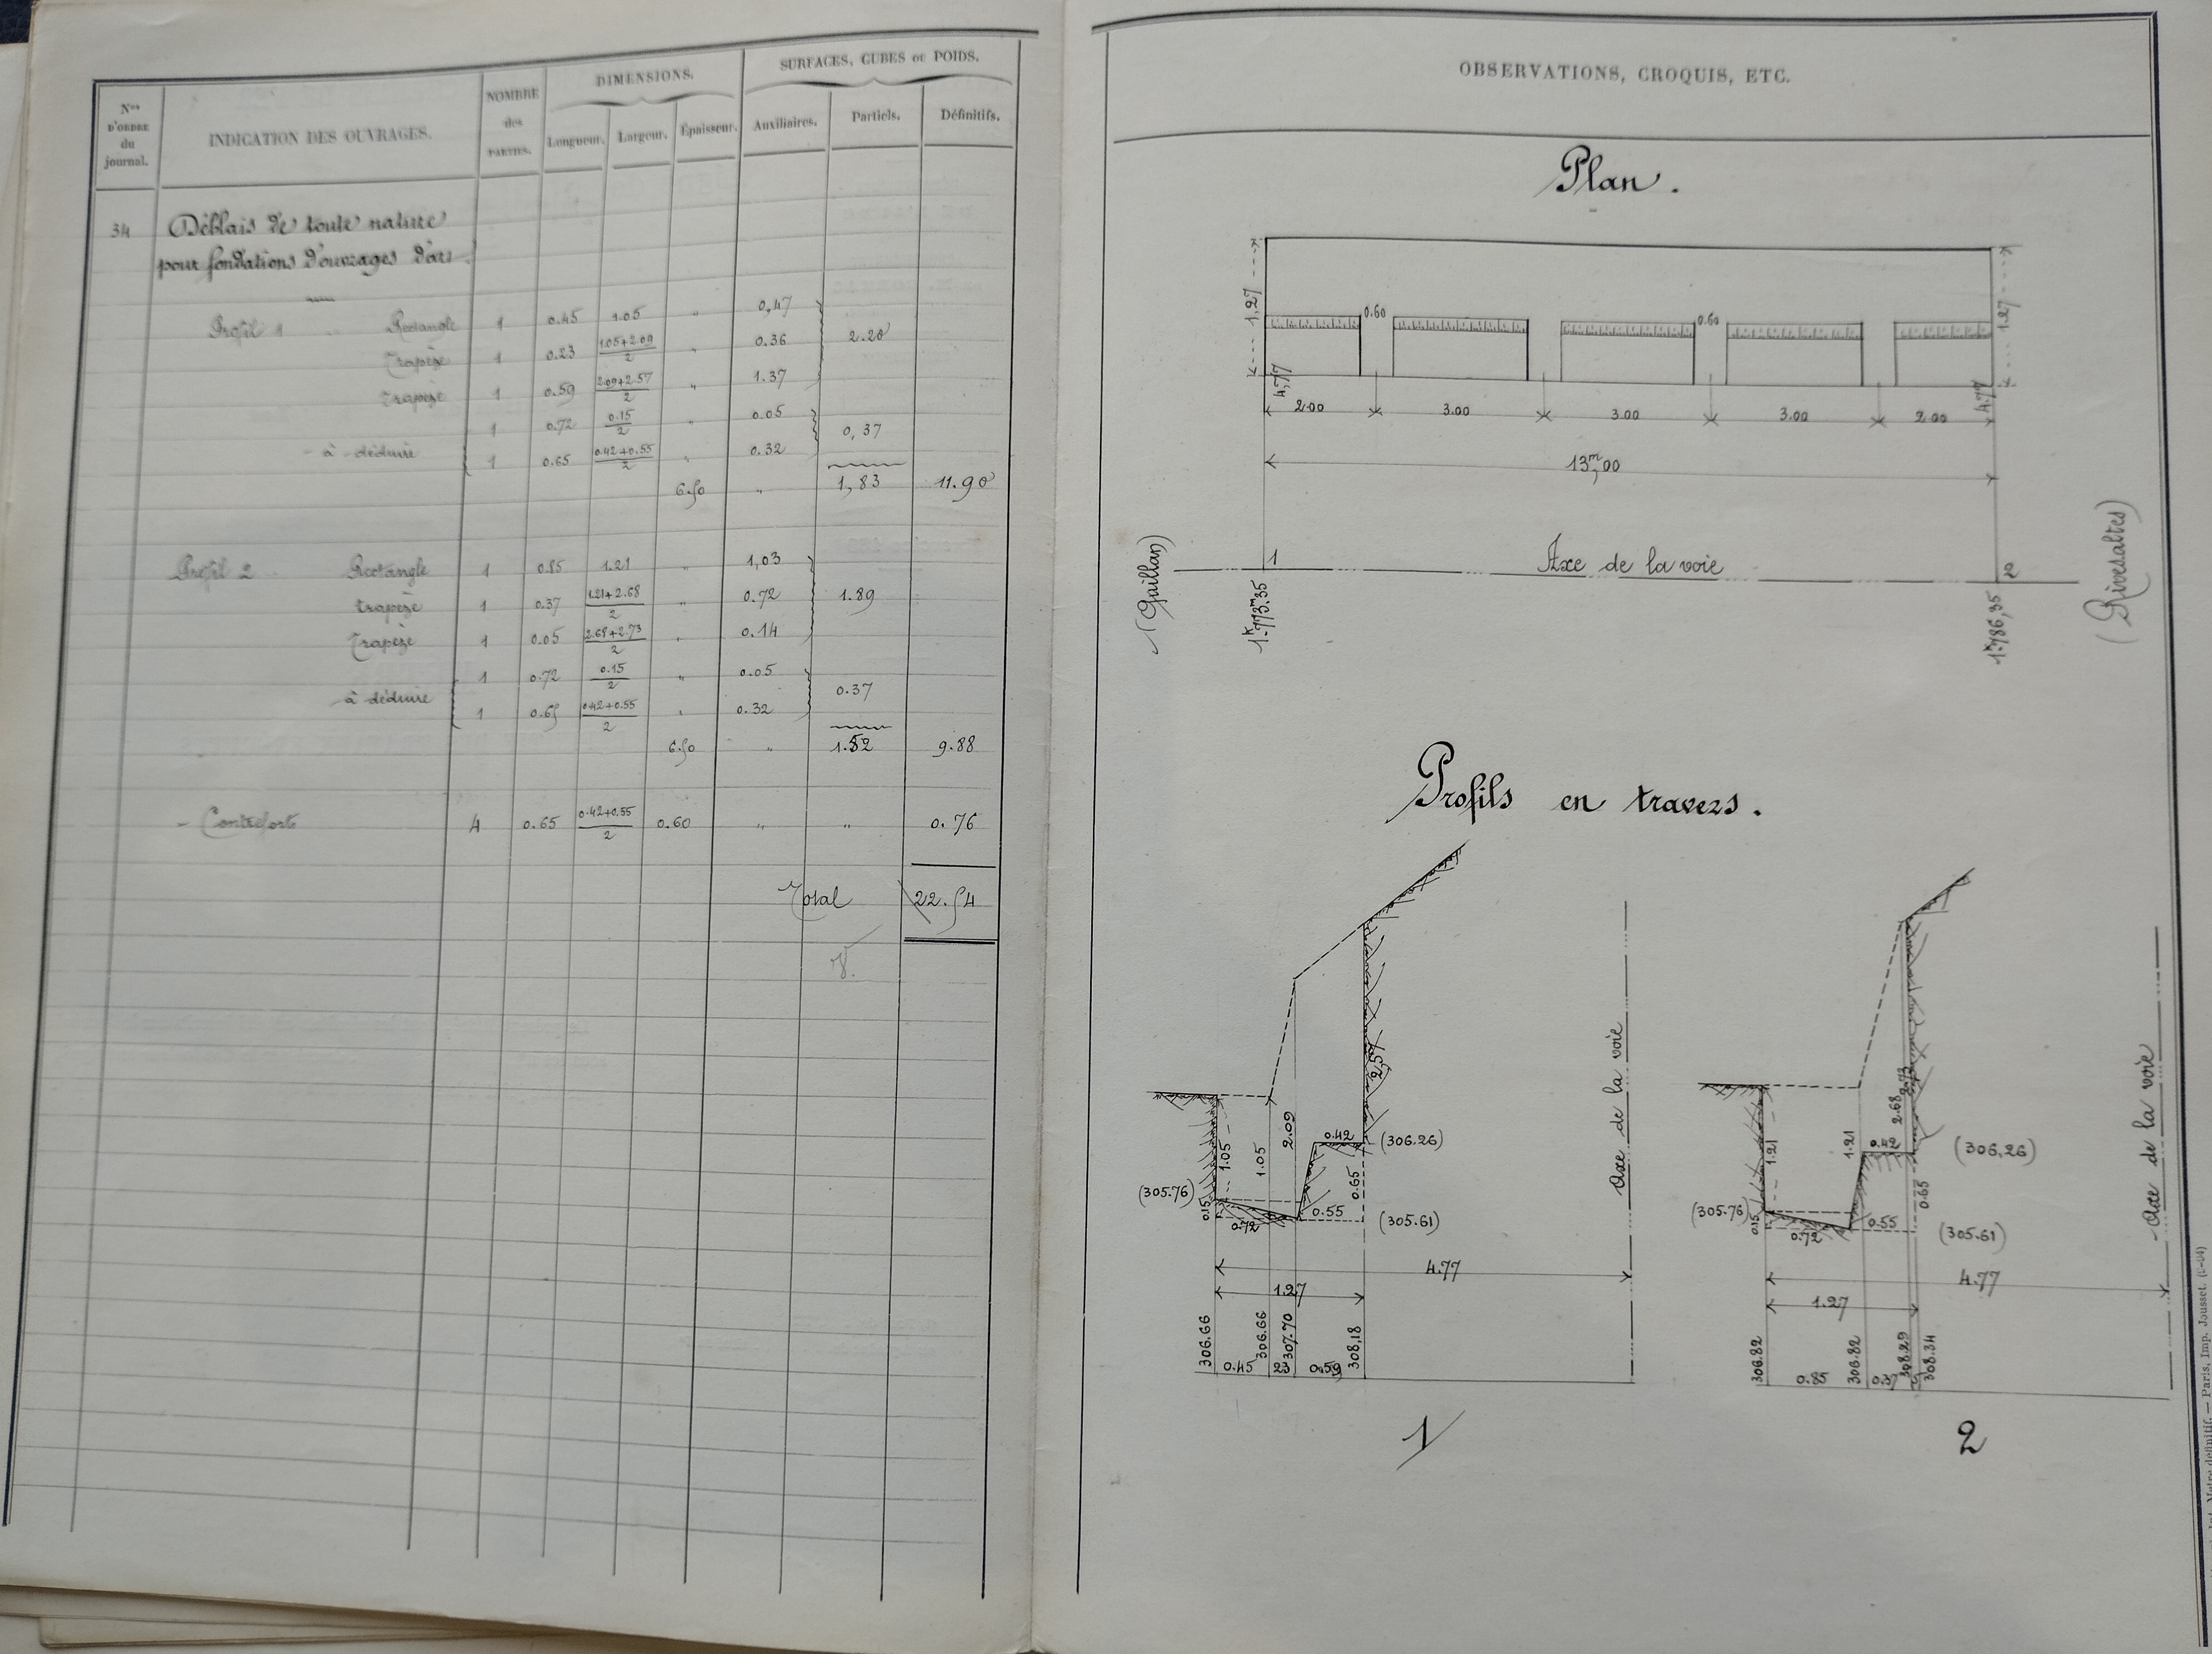 Nos D'ORDRE du journal.
INDICATION DES OUVRAGES.
NOMBRE des PARTIES.
DIMENSIONS.
Longueur. Largeur. Épaisseur.
SURFACES, CUBES ou POIDS.
Auxiliaires. Partiels. Définitifs.
34 Déblais de toute nature
pour fondations d'ouvrages d'art.
Profil 1 Rectangle 1 0.45 1.05 " 0,47
Trapèze 1 0.23 1.05+2.09/2 " 0.36 2.20
Trapèze 1 0.59 2.09+2.57/2 " 1.37
1 0.72 0.15/2 " 0.05
à déduire 1 0.65 0.42+0.55/2 " 0.32 0,37
6.50 " 1,83 11.90
Profil 2 Rectangle 1 0.85 1.21 " 1,03
trapèze 1 0.37 1.21+2.68/2 " 0.72 1.89
Trapèze 1 0.05 2.68+2.73/2 " 0.14
1 0.72 0.15/2 " 0.05
à déduire 1 0.65 0.42+0.55/2 " 0.32 0.37
6.50 " 1.52 9.88
- Contreforts 4 0.65 0.42+0.55/2 0.60 " " 0.76
Total 22.54
V.
OBSERVATIONS, CROQUIS, ETC.
Plan.
1,27 0.60 0.60 1.27
4,77 4.77
2.00 3.00 3.00 3.00 2.00
13m,00
(Quillan) 1 Axe de la voie 2 (Rivesaltes)
1k773m.35 1k786,35
Profils en travers.
2,57
Axe de la voie
1.05 1.05 2.09 0.42 (306.26)
(305.76) 0.15 0.72 0.55 0.65 (305.61)
4.77
1.27
306.66 306.66 307.70 308,18
0.45 23 0.59
1
2.73
2.68
Axe de la voie
1.21 1.21 0.42 (306,26)
(305.76) 0.15 0.72 0.55 0.65 (305.61)
4.77
1.27
306.82 306.82 308.29 308.34
0.85 0.37
2
Paris, Imp. Jousset.